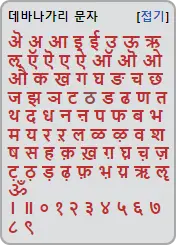 데바나가리 문자 [접기]
ऄ अ आ इ ई उ ऊ ऋ
ऌ ऍ ऎ ए ऐ ऑ ऒ ओ
औ क ख ग घ ङ च छ
ज झ ञ ट ठ ड ढ ण त
थ द ध न ऩ प फ ब भ
म य र ऱ ल ळ ऴ व श
ष स ह क़ ख़ ग़ घ़ च़ ज़
ट़ ठ़ ड़ ढ़ फ़ भ़ य़ ॠ ॡ
ॐ
। ॥ ० १ २ ३ ४ ५ ६ ७
८ ९